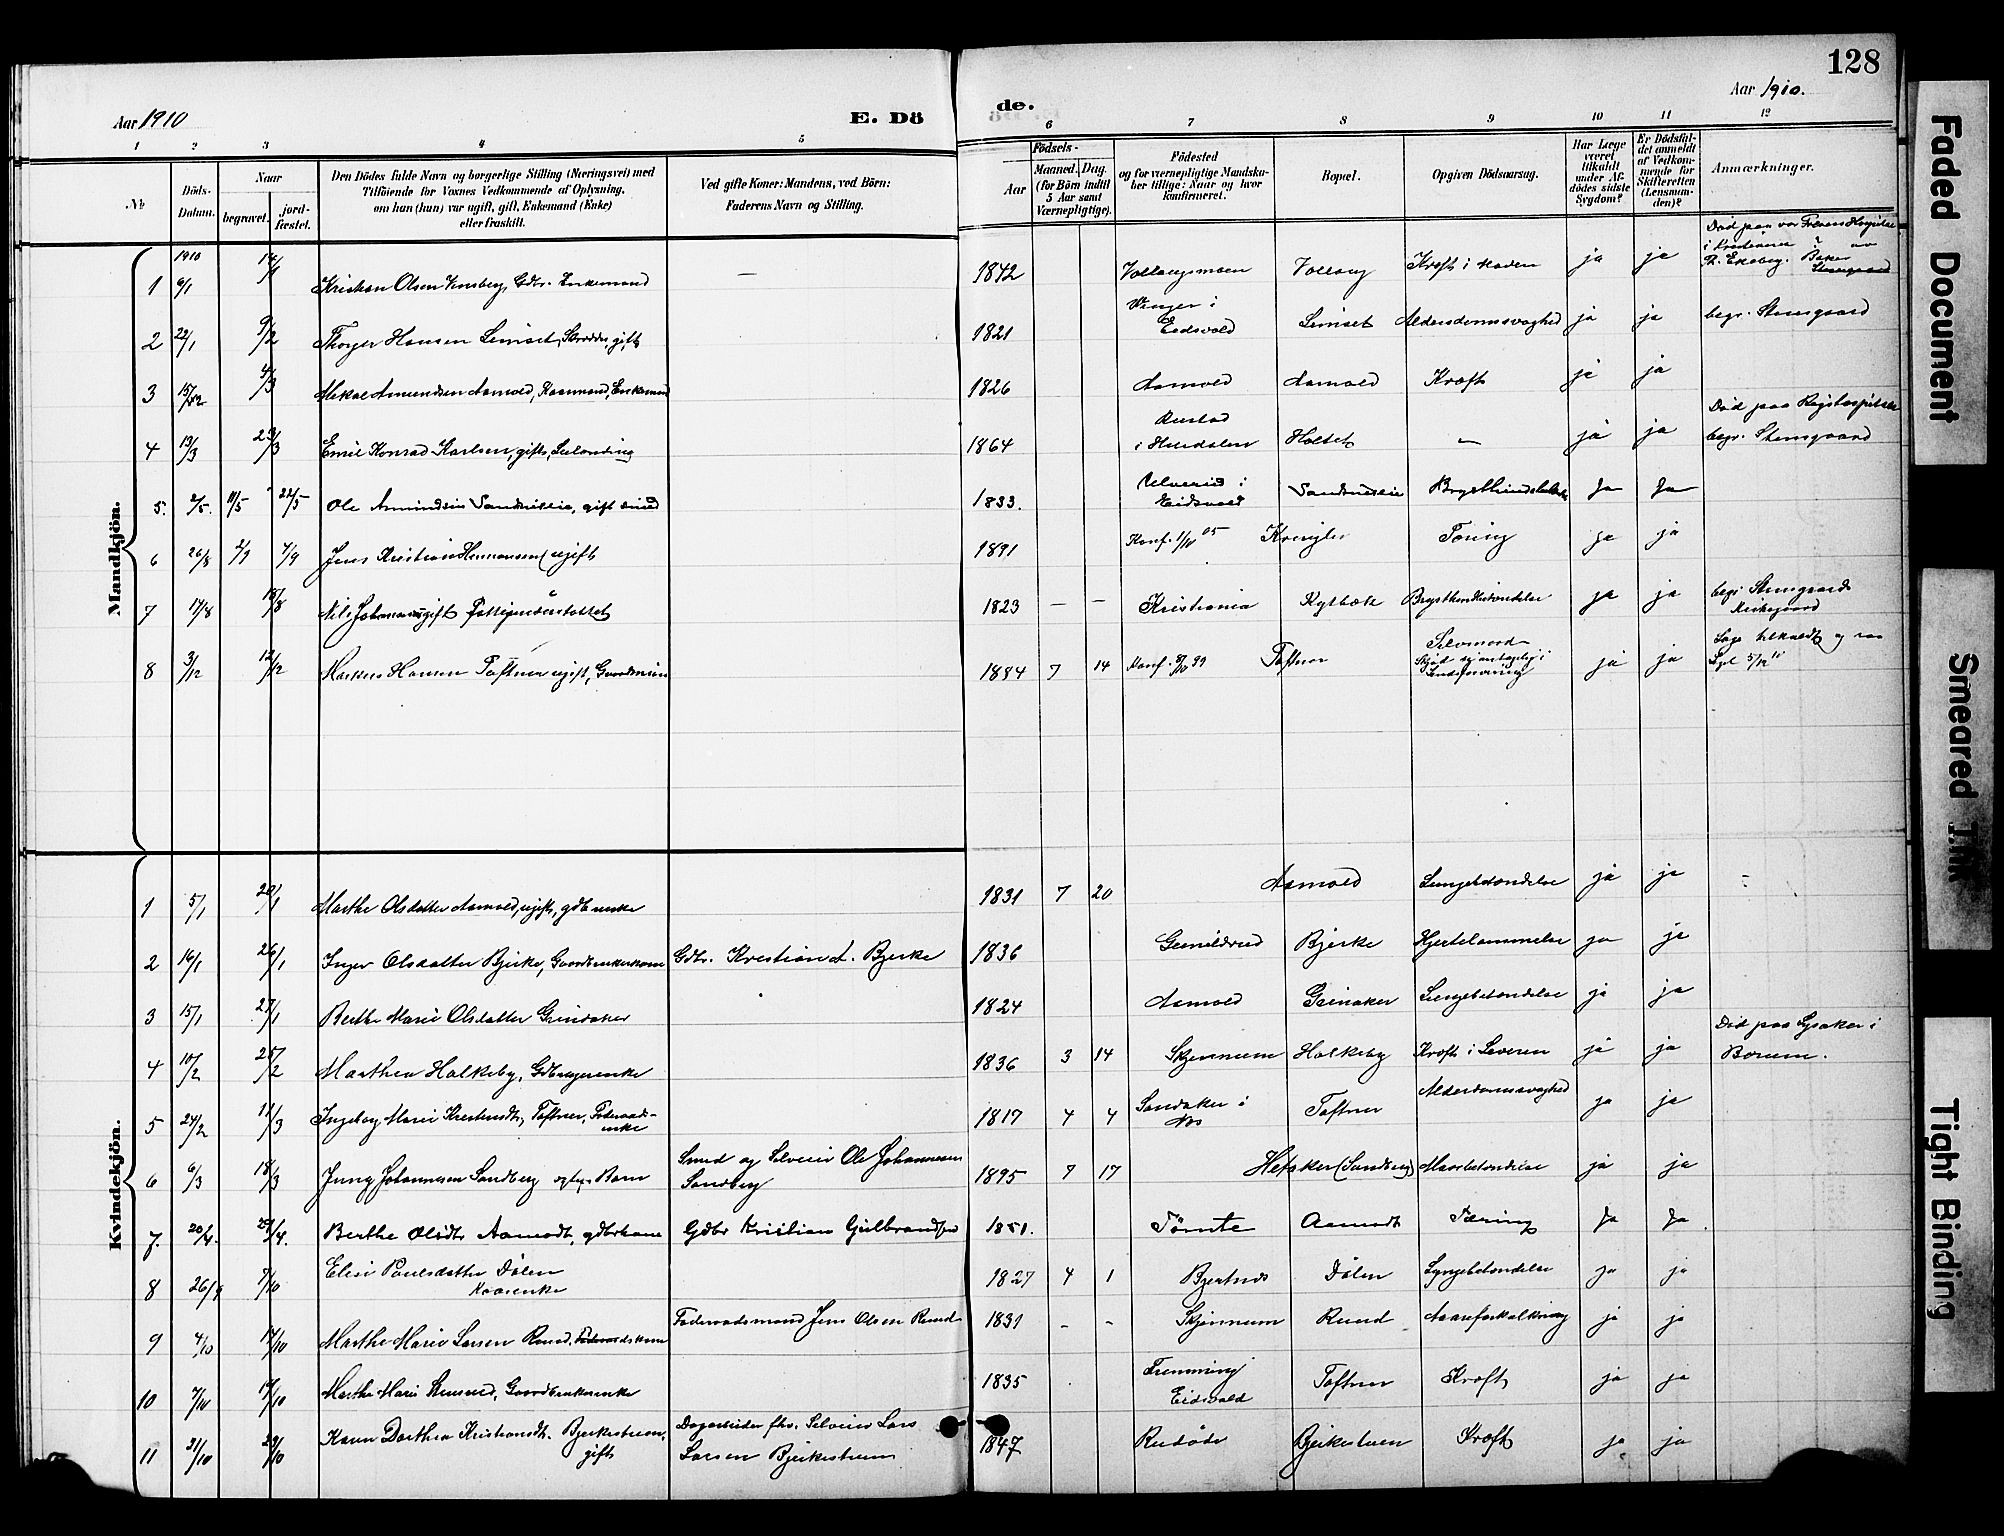 128
Aar 1910
E. Dö
de.
Aar 1910.
1 2 3 4 5 6 7 8 9 10 11 12
№
Döds-Datum.
Naar
begravet.
jord-fæstet.
Den Dödes fulde Navn og borgerlige Stilling (Næringsvei) med
Tilföiende for Voxnes Vedkommende af Oplysning,
om han (hun) var ugift, gift, Enkemand (Enke)
eller fraskilt.
Ved gifte Koner: Mandens, ved Börn:
Faderens Navn og Stilling.
Födsels-
Aar
Maaned. Dag.
(for Börn indtil
5 Aar samt
Værnepligtige).
Födested
og for værnepligtige Mandska-
ber tillige: Naar og hvor
konfirmeret.
Bopæl.
Opgiven Dödsaarsag.
Har Læge
været
tilkaldt
under Af-
dödes sidste
Sygdom?
Er Dödsfal-
det anmeldt
af Vedkom-
mende for
Skifteretten
(Lensman-
den)?
Anmærkninger.
Mandkjön.
1910
1 6/1 14/1 Kristian Olsen Gdbr. Enkemand — 1842 Vollaugsmoen Vollaug Kræft i ja ja Död paa vor Frues Hospital i Kristiania
2 22/1 9/2 Thorger Hansen Semset, gift 1821 i Eidsvold Semset Aldersdomssvaghed ja ja begr. Stensgaard
3 15/2 4/3 Mikal Amundsen Aamold, Kaarmand, Enkemand 1826 Aamold Aamold Kræft ja ja
4 13/3 23/3 Emil Konrad Karlsen, gift, 1864 Rustad i Hurdalen Holset — ja ja Död paa Rigshospitalet begr. Stensgaard
5. 2/5. 11/5 22/5 Ole Amundsen gift smed 1833. i Eidsvold Ja Ja
6 26/8 2/9 4/9 Jens Kristian Hermansen ugift 1891 Konf. 1/10 05 Krengler Tæring ja ja
7 14/8 18/8 Nils gift 1823 — — Kristiania Rytbæk ja ja begr. Stensgaards Kirkegaard
8 3/12 12/12 Markus Hansen Toftner ugift, 1884 7 14 Konf. 99 Toftner Selvmord ja ja
Kvindekjön.
1 5/1 20/1 Marthe Olsdatter Aamold, ugift, 1831 7 20 Aamold Lungebetændelse ja ja
2 16/1 26/1 Inger Olsdatter Bjerke, Gaardbrukerkone Gdbr. Kristian A. Bjerke 1836 Gemildrud Bjerke Hjertelammelse ja ja
3 15/1 27/1 Berthe Marie Olsdatter Grinaker 1824 Aamold Grinaker Lungebetændelse ja ja
4 10/2 25/2 Marthea Halkeby, 1836 3 14 Skjennum Halkeby Kræft i Leveren ja ja Död paa Lysaker i Bærum.
5 24/2 11/3 Ingeborg Marie Toftner, Föderaads-enke 1817 4 4 Sandaker i Nes Toftner Alderdomssvaghed ja ja
6 6/3 18/3 Jenny Johannesen Sandberg Barn Smed og Selveier Ole Johannesen Sandberg 1895 7 17 (Sandberg) ja ja
7. 20/4. 29/4. Berthe Olsdtr Aamodt, gdbrkone Gdbr Kristian Gulbrandsen 1851. Tömte Aamodt Tæring Ja Ja
8 26/9 7/10 Elisi Paulsdatter Dölen Kaarenke 1827 4 1 Bjertnes Dölen Lungebetændelse ja ja
9 4/10 14/10 Marthe Marie Larsen Ruud, Föderaadskone Föderaadsmand Jens Olsen Ruud 1831 - - Skjennum Ruud Aareforkalkning ja ja
10 7/10 19/10 Marthe Marie Gaardbrukerenke 1835 Eidsvold Toftner Kræft ja ja
11 21/10 29/10 Karen Dorthea Kristiansdt. Bjerkestuen, gift Dagarbeider fhv. Selveier Lars Larsen Bjerkestuen 1847 Rudöde Bjerkestuen Kræft ja ja
Faded Document
Smeared Ink
Tight Binding